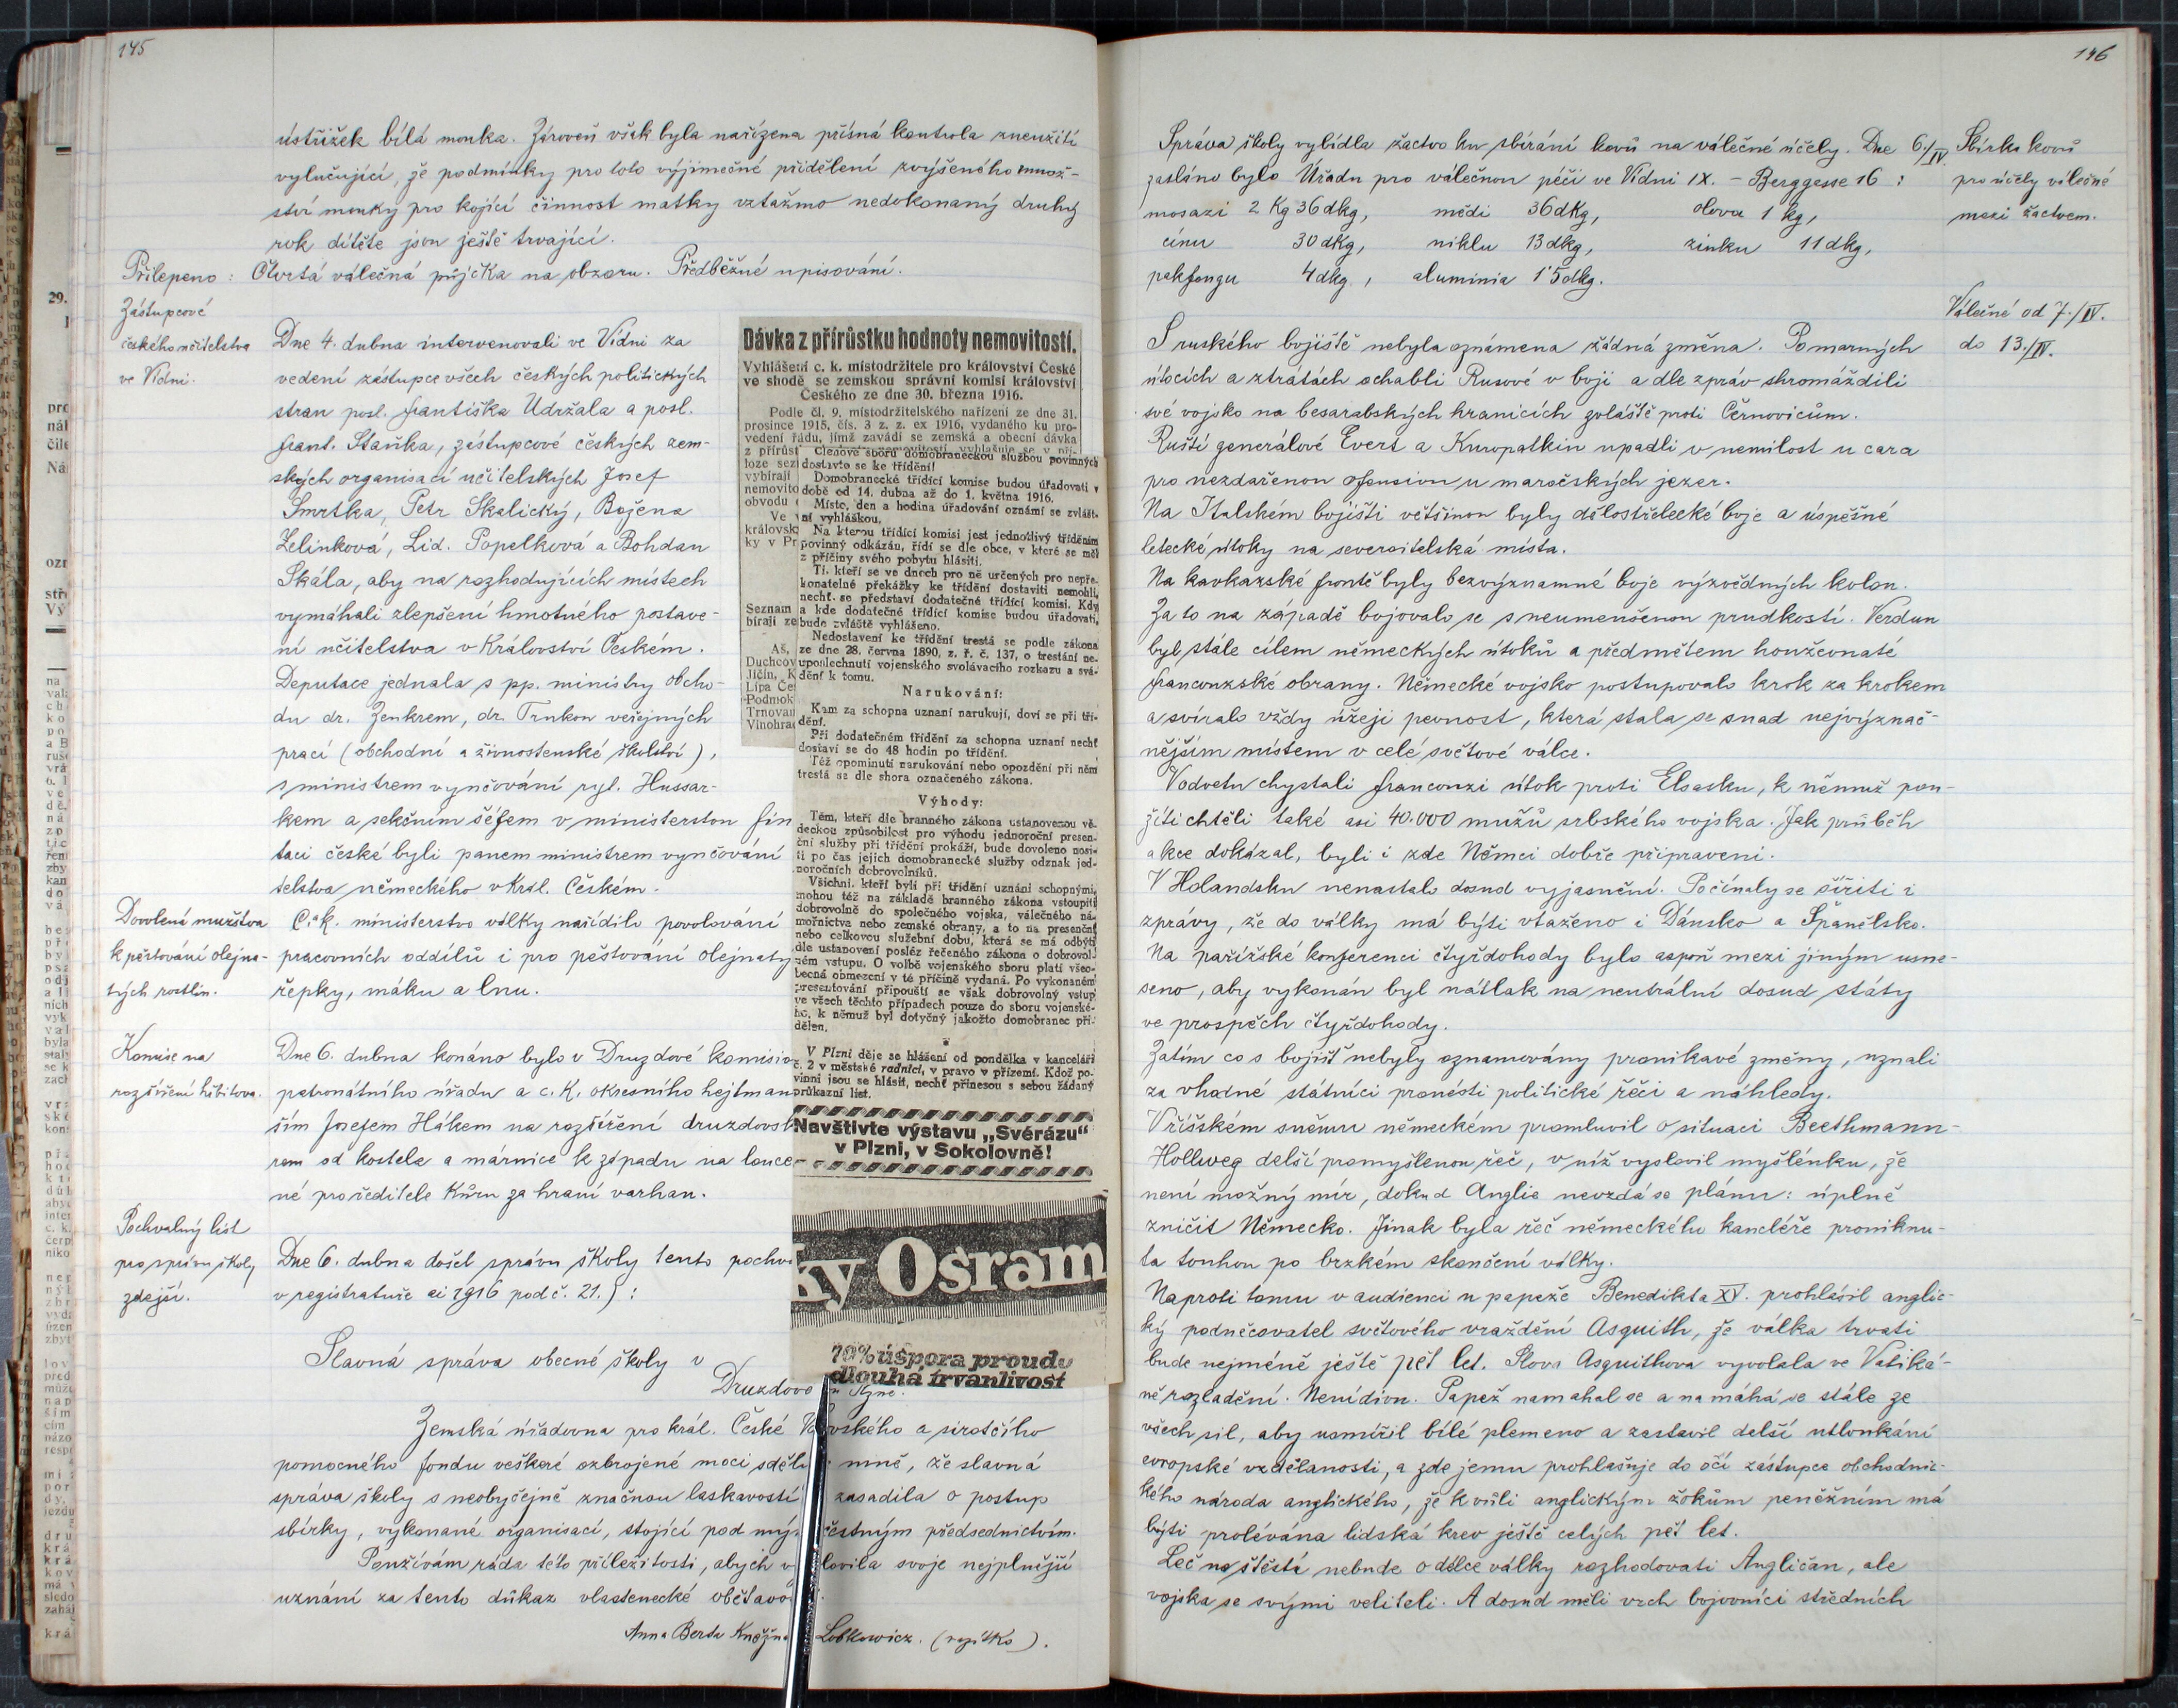 145
ústřižek bílá mouka. Zároveň však byla nařízena přísná kontrola zneužití
vylučující, že podmínky pro toto výjimečné přidělení zvýšeného množ-
ství mouky pro kojící činnost matky vztažmo nedokonaný druhý
rok dítěte jsou ještě trvající.
Přilepeno: Čtvrtá válečná půjčka na obzoru. Předběžné upisování.
Zástupcové
českého učitelstva
ve Vídni.
Dne 4. dubna intervenovali ve Vídni za
vedení zástupce všech českých politických
stran posl. Františka Udržala a posl.
Frant. Staňka, zástupcové českých zem-
ských organisací učitelských Josef
Smrtka, Petr Skalický, Božena
Zelinková, Lid. Popelková a Bohdan
Skála, aby na rozhodujících místech
vymáhali zlepšení hmotného postave-
ní učitelstva v Království Českém.
Deputace jednala s pp. ministry obcho-
du dr. Zenkrem, dr. Trnkou veřejných
prací (obchodní a živnostenské školství),
s ministrem vyučování ryt. Hussar-
kem a sekčním šéfem v ministerstvu fin
taci české byli panem ministrem vyučování
telstva německého v Král. Českém.
Dovolená mužstva
k pěstování olejna-
tých rostlin.
C. a k. ministerstvo války nařídilo povolování
pracovních oddílů i pro pěstování olejnatý
řepky, máku a lnu.
Komise na
rozšíření hřbitova.
Dne 6. dubna konáno bylo v Druzdové komisio
patronátního úřadu a c. k. okresního hejtman
ším Josefem Hákem na rozšíření druzdovsk
rem od kostela a márnice k západu na louce
né pro ředitele kůru za hraní varhan.
Pochvalný list
pro správu školy
zdejší.
Dne 6. dubna došel správu školy tento pochv
v registratuře ai 1916 pod č. 21.):
Slavná správa obecné školy v
Druzdově
Zemská úřadovna pro král. České V vského a sirotčího
pomocného fondu veškeré ozbrojené moci sděl mně, že slavná
správa školy s neobyčejně značnou laskavostí zasadila o postup
sbírky, vykonané organisací, stojící pod mým čestným předsednictvím.
Použivám ráda této příležitosti, abych v lovila svoje nejplnější
uznání za tento důkaz vlastenecké obětavo
Anna Berta Kněžna Lobkowicz. (razítko).
Dávka z přírůstku hodnoty nemovitostí.
Vyhlášení c. k. místodržitele pro království České
ve shodě se zemskou správní komisí království
Českého ze dne 30. března 1916.
Podle čl. 9. místodržitelského nařízení ze dne 31.
prosince 1915, čís. 3 z. z. ex 1916, vydaného ku pro-
vedení řádu, jímž zavádí se zemská a obecní dávka
z přírůst
loze sez
vybírají
nemovito
obvodu
Ve
královsk
ky v Pr
Seznam
bírají ze
Aš,
Duchcov
Jičín, K
Lípa Če
Podmok
Trnovan
Vinohra
Členové sborů domobraneckou službou povinných
dostavte se ke třídění!
Domobranecké třídící komise budou úřadovati v
době od 14. dubna až do 1. května 1916.
Místo, den a hodina úřadování oznámí se zvlášt-
ní vyhláškou.
Na kterou třídící komisi jest jednotlivý tříděním
povinný odkázán, řídí se dle obce, v které se měl
z příčiny svého pobytu hlásiti.
Ti, kteří se ve dnech pro ně určených pro nepře-
konatelné překážky ke třídění dostaviti nemohli,
nechť se představí dodatečné třídící komisi. Kdy
a kde dodatečné třídící komise budou úřadovati,
bude zvláště vyhlášeno.
Nedostavení ke třídění trestá se podle zákona
ze dne 28. června 1890, z. ř. č. 137, o trestání ne-
uposlechnutí vojenského svolávacího rozkazu a svá-
dění k tomu.
Narukování:
Kam za schopna uznaní narukují, doví se při tří-
dění.
Při dodatečném třídění za schopna uznaní nechť
dostaví se do 48 hodin po třídění.
Též opominutí narukování nebo opozdění při něm
trestá se dle shora označeného zákona.
Výhody:
Těm, kteří dle branného zákona ustanovenou vě-
deckou způsobilost pro výhodu jednoroční presen-
ční služby při třídění prokáží, bude dovoleno nosi-
ti po čas jejich domobranecké služby odznak jed-
noročních dobrovolníků.
Všichni, kteří byli při třídění uznáni schopnými,
mohou též na základě branného zákona vstoupiti
dobrovolně do společného vojska, válečného ná-
mořnictva nebo zemské obrany, a to na presenční
nebo celkovou služební dobu, která se má odbýti
dle ustanovení posléz řečeného zákona o dobrovol-
ném vstupu. O volbě vojenského sboru platí všeo-
becná obmezení v té příčině vydaná. Po vykonaném
presentování připouští se však dobrovolný vstup
ve všech těchto případech pouze do sboru vojenské-
ho, k němuž byl dotyčný jakožto domobranec při-
dělen.
V Plzni děje se hlášení od pondělka v kanceláři
č. 2 v městské radnici, v pravo v přízemí. Kdož po-
vinni jsou se hlásit, nechť přinesou s sebou žádaný
průkazní list.
Navštivte výstavu „Svérázu“
v Plzni, v Sokolovně!
ky Osram
70% úspora proudu
dlouhá trvanlivost
146
Správa školy vybídla žactvo ku sbírání kovů na válečné účely. Dne 6./IV.
zasláno bylo Úřadu pro válečnou péči ve Vídni IX. – Berggasse 16:
mosazi 2 Kg 36 dkg, mědi 36 dKg, olova 1 kg,
cínu 30 dKg, niklu 13 dkg, zinku 11 dkg,
pakfongu 4 dkg, aluminia 1·5 dkg.
Sbírka kovů
pro účely válečné
mezi žactvem.
Válečné od 7./IV.
do 13./IV.
S ruského bojiště nebyla oznámena žádná změna. Po marných
útocích a ztrátách ochabli Rusové v boji a dle zpráv shromáždili
své vojsko na besarabských hranicích zvláště proti Černovicům.
Ruští generálové Evert a Kuropatkin upadli v nemilost u cara
pro nezdařenou ofensivu u maročských jezer.
Na Italském bojišti většinou byly dělostřelecké boje a úspěšné
letecké útoky na severoitalská místa.
Na kavkazské frontě byly bezvýznamné boje výzvědných kolon.
Za to na západě bojovalo se s neumenšenou prudkostí. Verdun
byl stále cílem německých útoků a předmětem houževnaté
francouzské obrany. Německé vojsko postupovalo krok za krokem
a svíralo vždy úžeji pevnost, která stala se snad nejvýznač-
nějším místem v celé světové válce.
V odvetu chystali francouzi útok proti Elsasku, k němuž pou-
žíti chtěli také asi 40.000 mužů srbského vojska. Jak průběh
akce dokázal, byli i zde Němci dobře připraveni.
V Holandsku nenastalo dosud vyjasnění. Počínaly se šířiti i
zprávy, že do války má býti vtaženo i Dánsko a Španělsko.
Na pařížské konferenci čtyřdohody bylo aspoň mezi jiným usne-
seno, aby vykonán byl nátlak na neutrální dosud státy
ve prospěch čtyřdohody.
Zatím co s bojišť nebyly oznamovány pronikavé změny, uznali
za vhodné státníci pronésti politické řeči a náhledy.
V říšském sněmu německém promluvil o situaci Beethmann-
Hollweg delší promyšlenou řeč, v níž vyslovil myšlénku, že
není možný mír, dokud Anglie nevzdá se plánu: úplně
zničit Německo. Jinak byla řeč německého kancléře proniknu-
ta touhou po brzkém skončení války.
Naproti tomu v audienci u papeže Benedikta XV. prohlásil anglic-
ký podněcovatel světového vraždění Asquith, že válka trvati
bude nejméně ještě pět let. Slova Asquithova vyvolala ve Vatiká-
ně rozladění. Není divu. Papež namahal se a namáhá se stále ze
všech sil, aby usmířil bílé plemeno a zastavil delší utloukání
evropské vzdělanosti, a zde jemu prohlašuje do očí zástupce obchodnic-
kého národa anglického, že k vůli anglickým žokům peněžním má
býti prolévána lidská krev ještě celých pět let.
Leč na štěstí nebude o délce války rozhodovati Angličan, ale
vojska se svými veliteli. A dosud měli vrch bojovníci středních